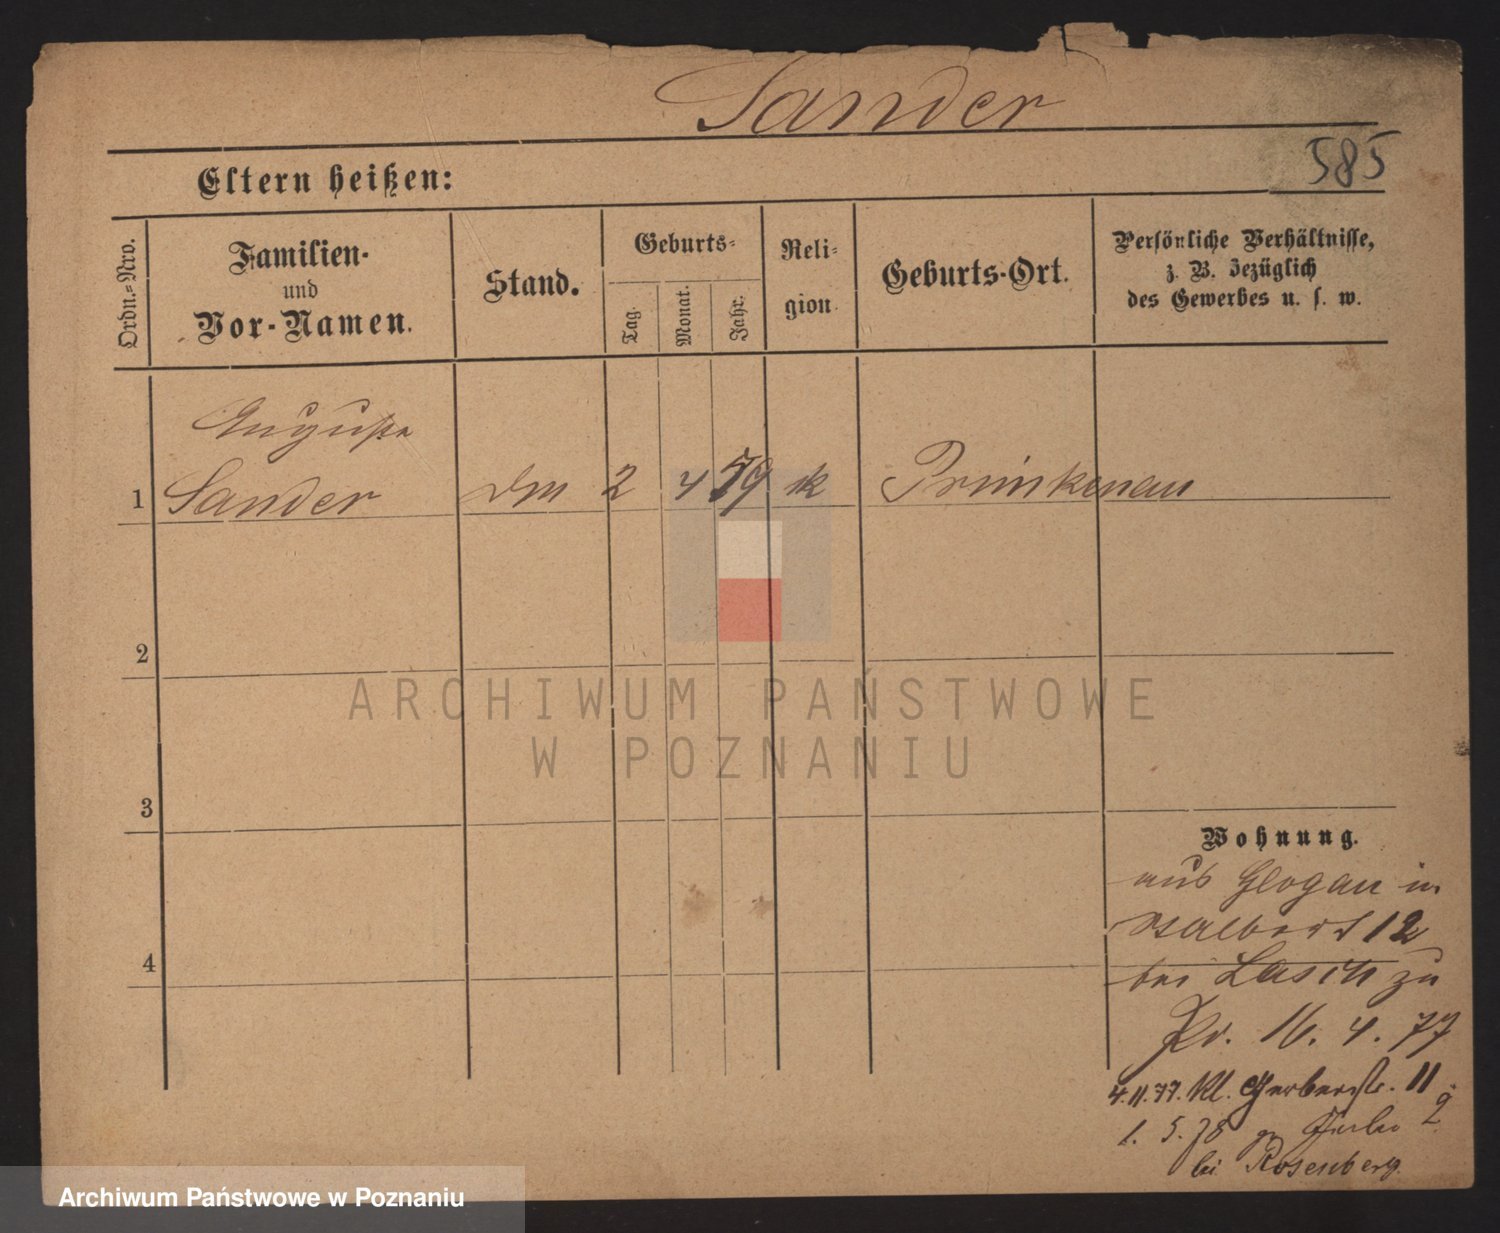 Sander
585
Eltern heißen:
Ordn.-Nro.
Familien-
und
Vor-Namen.
Stand.
Geburts-
Tag.
Monat.
Jahr.
Reli-
gion.
Geburts-Ort.
Persönliche Verhältnisse,
z. B. bezüglich
des Gewerbes u. s. w.
Auguste
1 Sander 2 4 59 k Primkenau
2
ARCHIWUM PAŃSTWOWE
W POZNANIU
3
Wohnung.
aus Glogau in
12
4
bei zu
16. 4. 77
4.11.77. Kl. Gerberstr. 11
1. 5. 78 gr 2
bei Rosenberg.
Archiwum Państwowe w Poznaniu